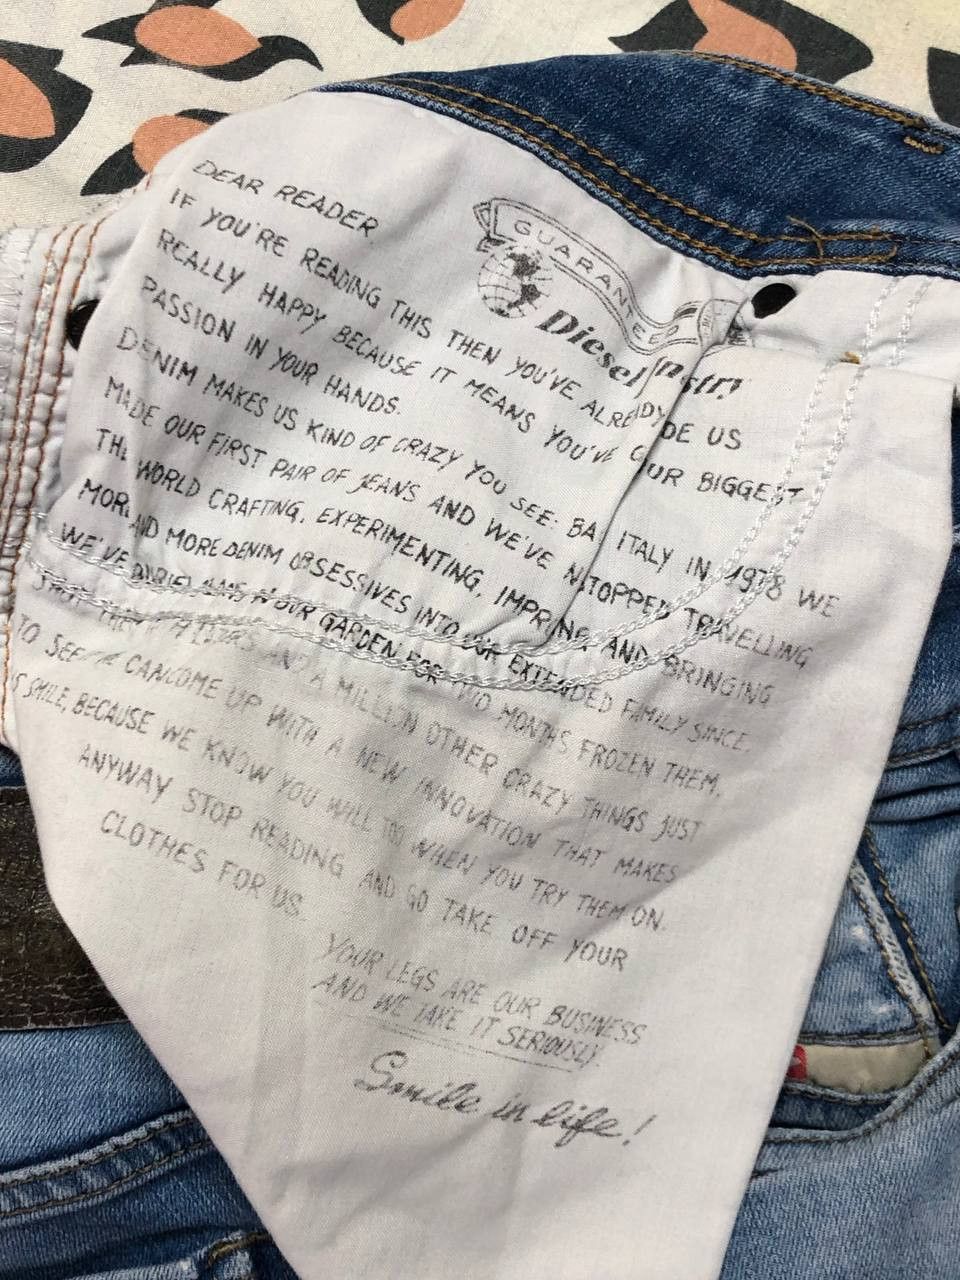 GUARANTEED
Diesel Instr
DEAR READER
IF YOU'RE READING THIS THEN YOU'VE ALREADY DE US
REALLY HAPPY BECAUSE IT MEANS YOU'VE OUR BIGGEST
PASSION IN YOUR HANDS.
DENIM MAKES US KIND OF CRAZY YOU SEE: BA ITALY IN 1978 WE
MADE OUR FIRST PAIR OF JEANS AND WE'VE N TOPPED TRAVELLING
THE WORLD CRAFTING, EXPERIMENTING, IMPR NG AND BRINGING
MORE AND MORE DENIM OBSESSIVES INTO OUR EXTENDED FAMILY SINCE.
WE'VE BURIED JEANS IN OUR GARDEN FOR MONTHS FROZEN THEM,
AND A MILLION OTHER CRAZY THINGS JUST
TO SEE CAN COME UP WITH A NEW INNOVATION THAT MAKES
US SMILE, BECAUSE WE KNOW YOU WILL TOO WHEN YOU TRY THEM ON.
ANYWAY STOP READING AND GO TAKE OFF YOUR
CLOTHES FOR US.
YOUR LEGS ARE OUR BUSINESS
AND WE TAKE IT SERIOUSLY
Smile in life!